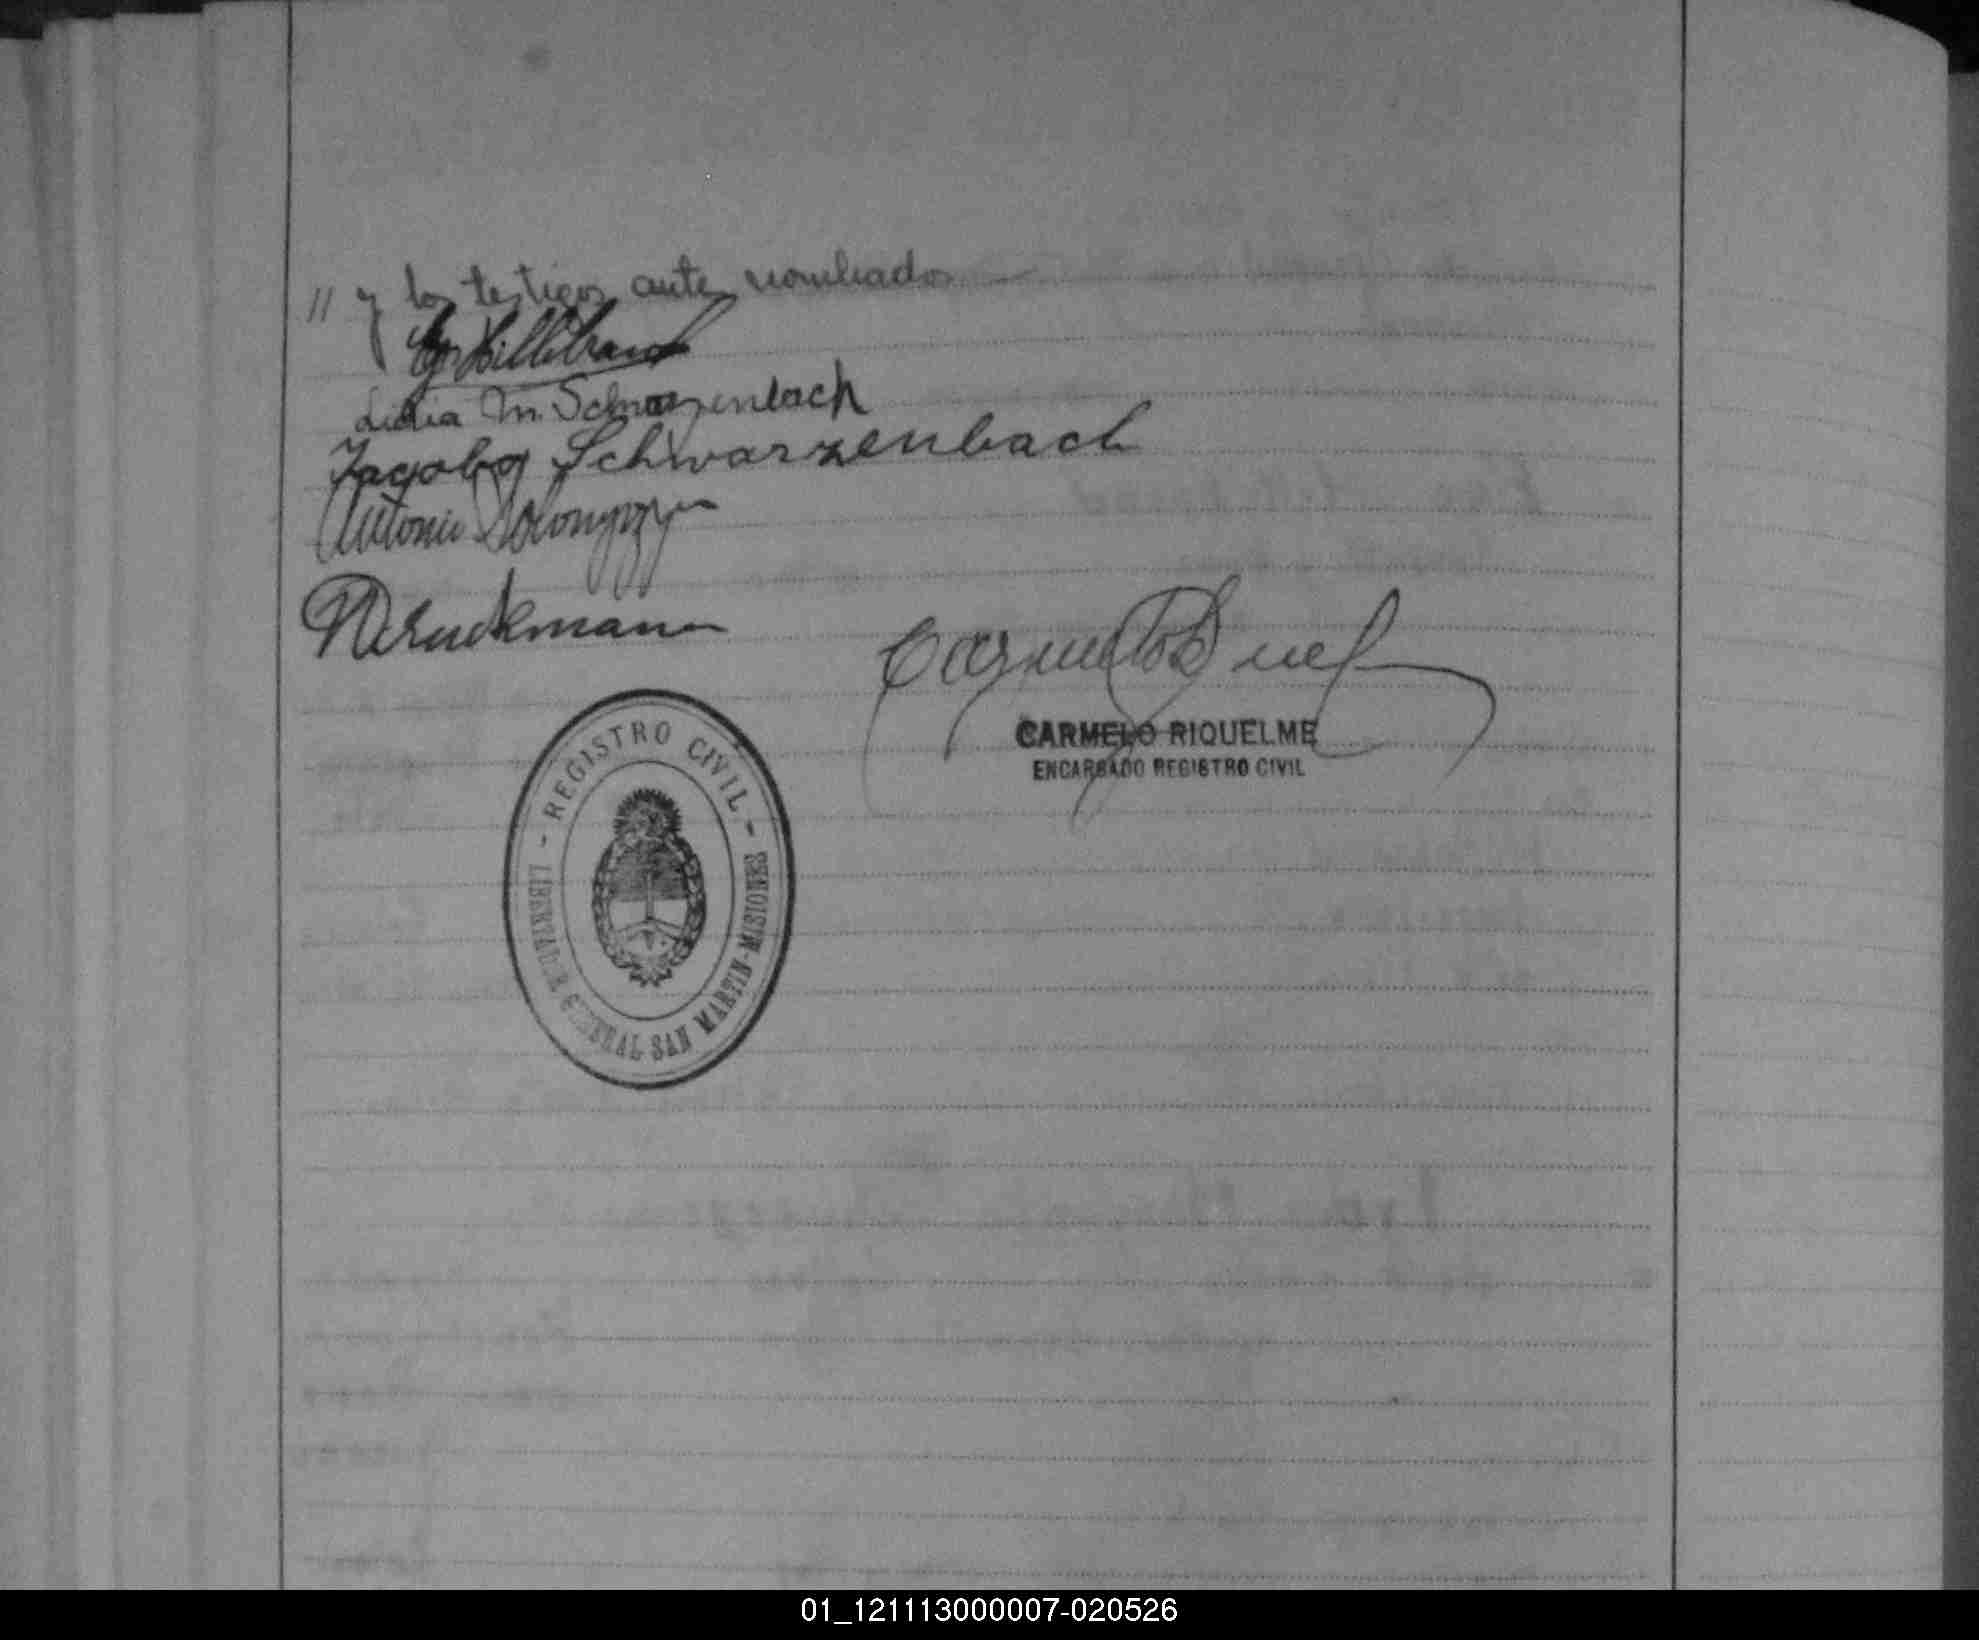 // y los testigos ante nombrados
G. Hillebrand
Lidia M. Schwarzenbach
Jagobo Schwarzenbach
Antonio
Druckmann
CARMELO RIQUELME
ENCARGADO REGISTRO CIVIL
- REGISTRO CIVIL -
LIBERTADOR GENERAL SAN MARTIN-MISIONES
01_121113000007-020526